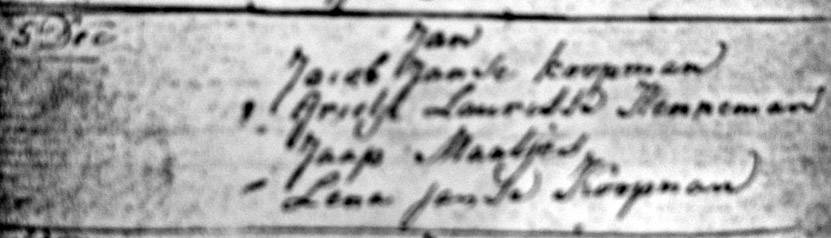 5 Dec
Jan
Jacob Janse Koopman
Grietje Laurisse Henneman
Jaap Maatjes
Lena Janse Koopman